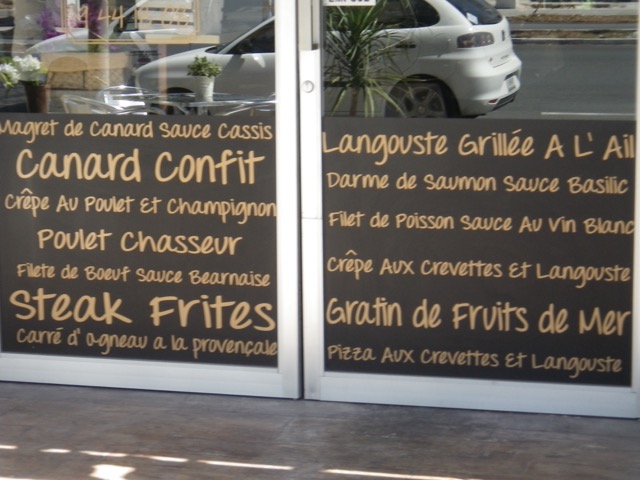 Magret de Canard Sauce Cassis
Canard Confit
Crêpe Au Poulet Et Champignon
Poulet Chasseur
Filete de Boeuf Sauce Bearnaise
Steak Frites
Carré d'agneau a la provençale
Langouste Grillée A L' Ail
Darme de Saumon Sauce Basilic
Filet de Poisson Sauce Au Vin Blanc
Crêpe Aux Crevettes Et Langouste
Gratin de Fruits de Mer
Pizza Aux Crevettes Et Langouste